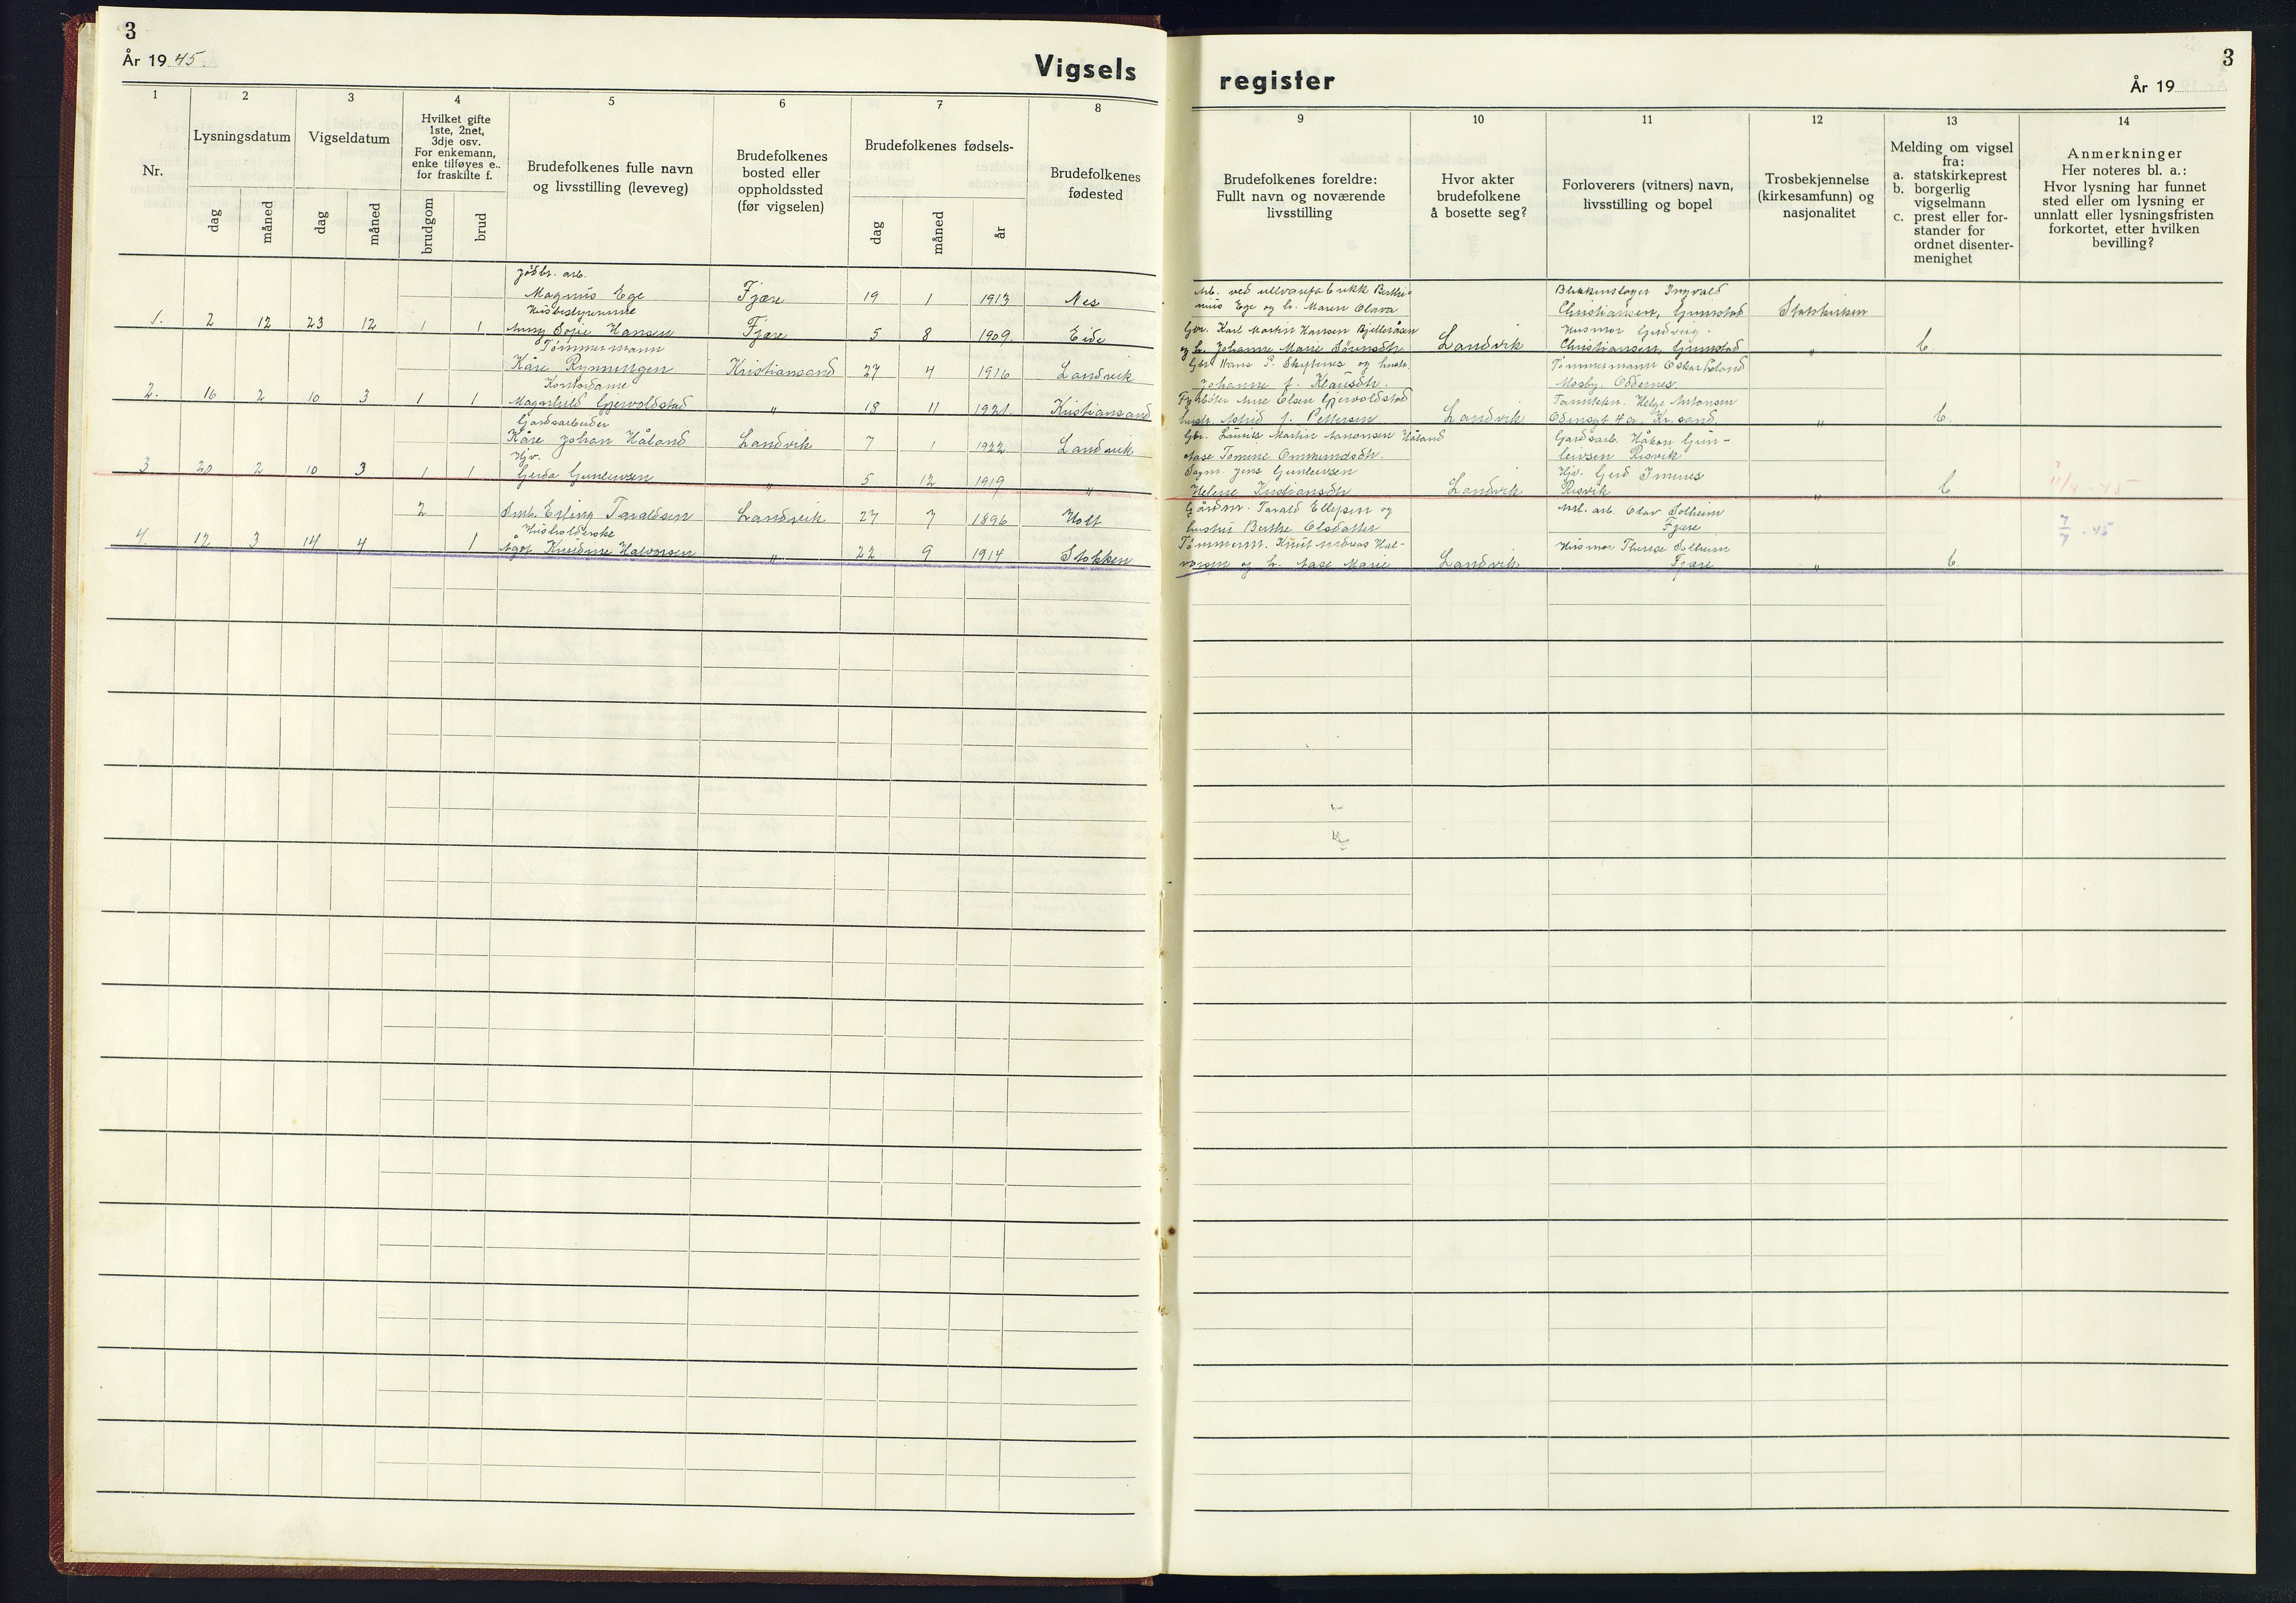 3
År 19 45.
Vigsels
register
3
År 19
1
2
3
4
5
6
7
8
9
10
11
12
13
14
Nr.
Lysningsdatum
dag
måned
Vigseldatum
dag
måned
Hvilket gifte
1ste, 2net,
3dje osv.
For enkemann,
enke tilføyes e..
for fraskilte f.
brudgom
brud
Brudefolkenes fulle navn
og livsstilling (leveveg)
Brudefolkenes
bosted eller
oppholdssted
(før vigselen)
Brudefolkenes fødsels-
dag
måned
år
Brudefolkenes
fødested
Brudefolkenes foreldre:
Fullt navn og noværende
livsstilling
Hvor akter
brudefolkene
å bosette seg?
Forloverers (vitners) navn,
livsstilling og bopel
Trosbekjennelse
(kirkesamfunn) og
nasjonalitet
Melding om vigsel
fra:
a. statskirkeprest
b. borgerlig
vigselmann
c. prest eller for-
stander for
ordnet disenter-
menighet
Anmerkninger
Her noteres bl. a.:
Hvor lysning har funnet
sted eller om lysning er
unnlatt eller lysningsfristen
forkortet, etter hvilken
bevilling?
1. 2 12 23 12 1 1
jordbr. arb.
Magnus Ege
Fjære 19 1 1913 Nes
Husbestyrerinne
Anny Sofie Hansen
Fjære 5 8 1909. Eide
Arb. ved ullvarefabrikk
Ege og h. Maren Olava
Gbr. Karl Martin Hansen
og h. Johanne Marie Sørensdtr.
Landvik
Blikkenslager Ingvald
Christiansen, Grimstad
Husmor
Christiansen, Grimstad
Statskirken
" b
2. 16 2 10 3 1 1
Tømmermann
Kåre
Kristiansand 27 4 1916 Landvik
Kontordame
Magnhild Gjervoldstad
" 18 11 1921 Kristiansand
Gbr. Hans P.
Johanne f. Klausdtr.
Olsen Gjervoldstad
hustr. Astrid f. Pettersen
Landvik
Tømmermann Oskar
Mosby, Oddernes.
Helge Antonsen
Odinsgt 4a. Kr.sand.
" b.
3. 20 2 10 3 1 1
Gårdsarbeider
Kåre Johan Håland
Landvik 7 1 1922 Landvik
Hjv.
Gerda Gunleivsen
" 5 12 1919 "
Gbr. Martin Håland
Aase Tomine Ommundsdtr.
Sagm. Jens Gunleivsen
Helene Kristiansdtr
Landvik
Gårdsarb. Håkon Gun-
leivsen Resvik
Hjv. Gerd
Resvik
" b
11/4 - 45
4. 12 3 14 4 2 1
Småb. Erling Taraldsen
Landvik 27 7 1896 Holt
Husholderske
Ågot Knudine Halvorsen
" 22 9 1914 Stokken
Gårdm. Tarald Ellefsen og
hustru Berthe Olsdatter
Tømmerm. Knut Andreas Hal-
vorsen og h. Aase Marie
Landvik
arb. Olav Solheim
Fjære
Husmor Therese Solheim
Fjære
" b.
7/7 - 45